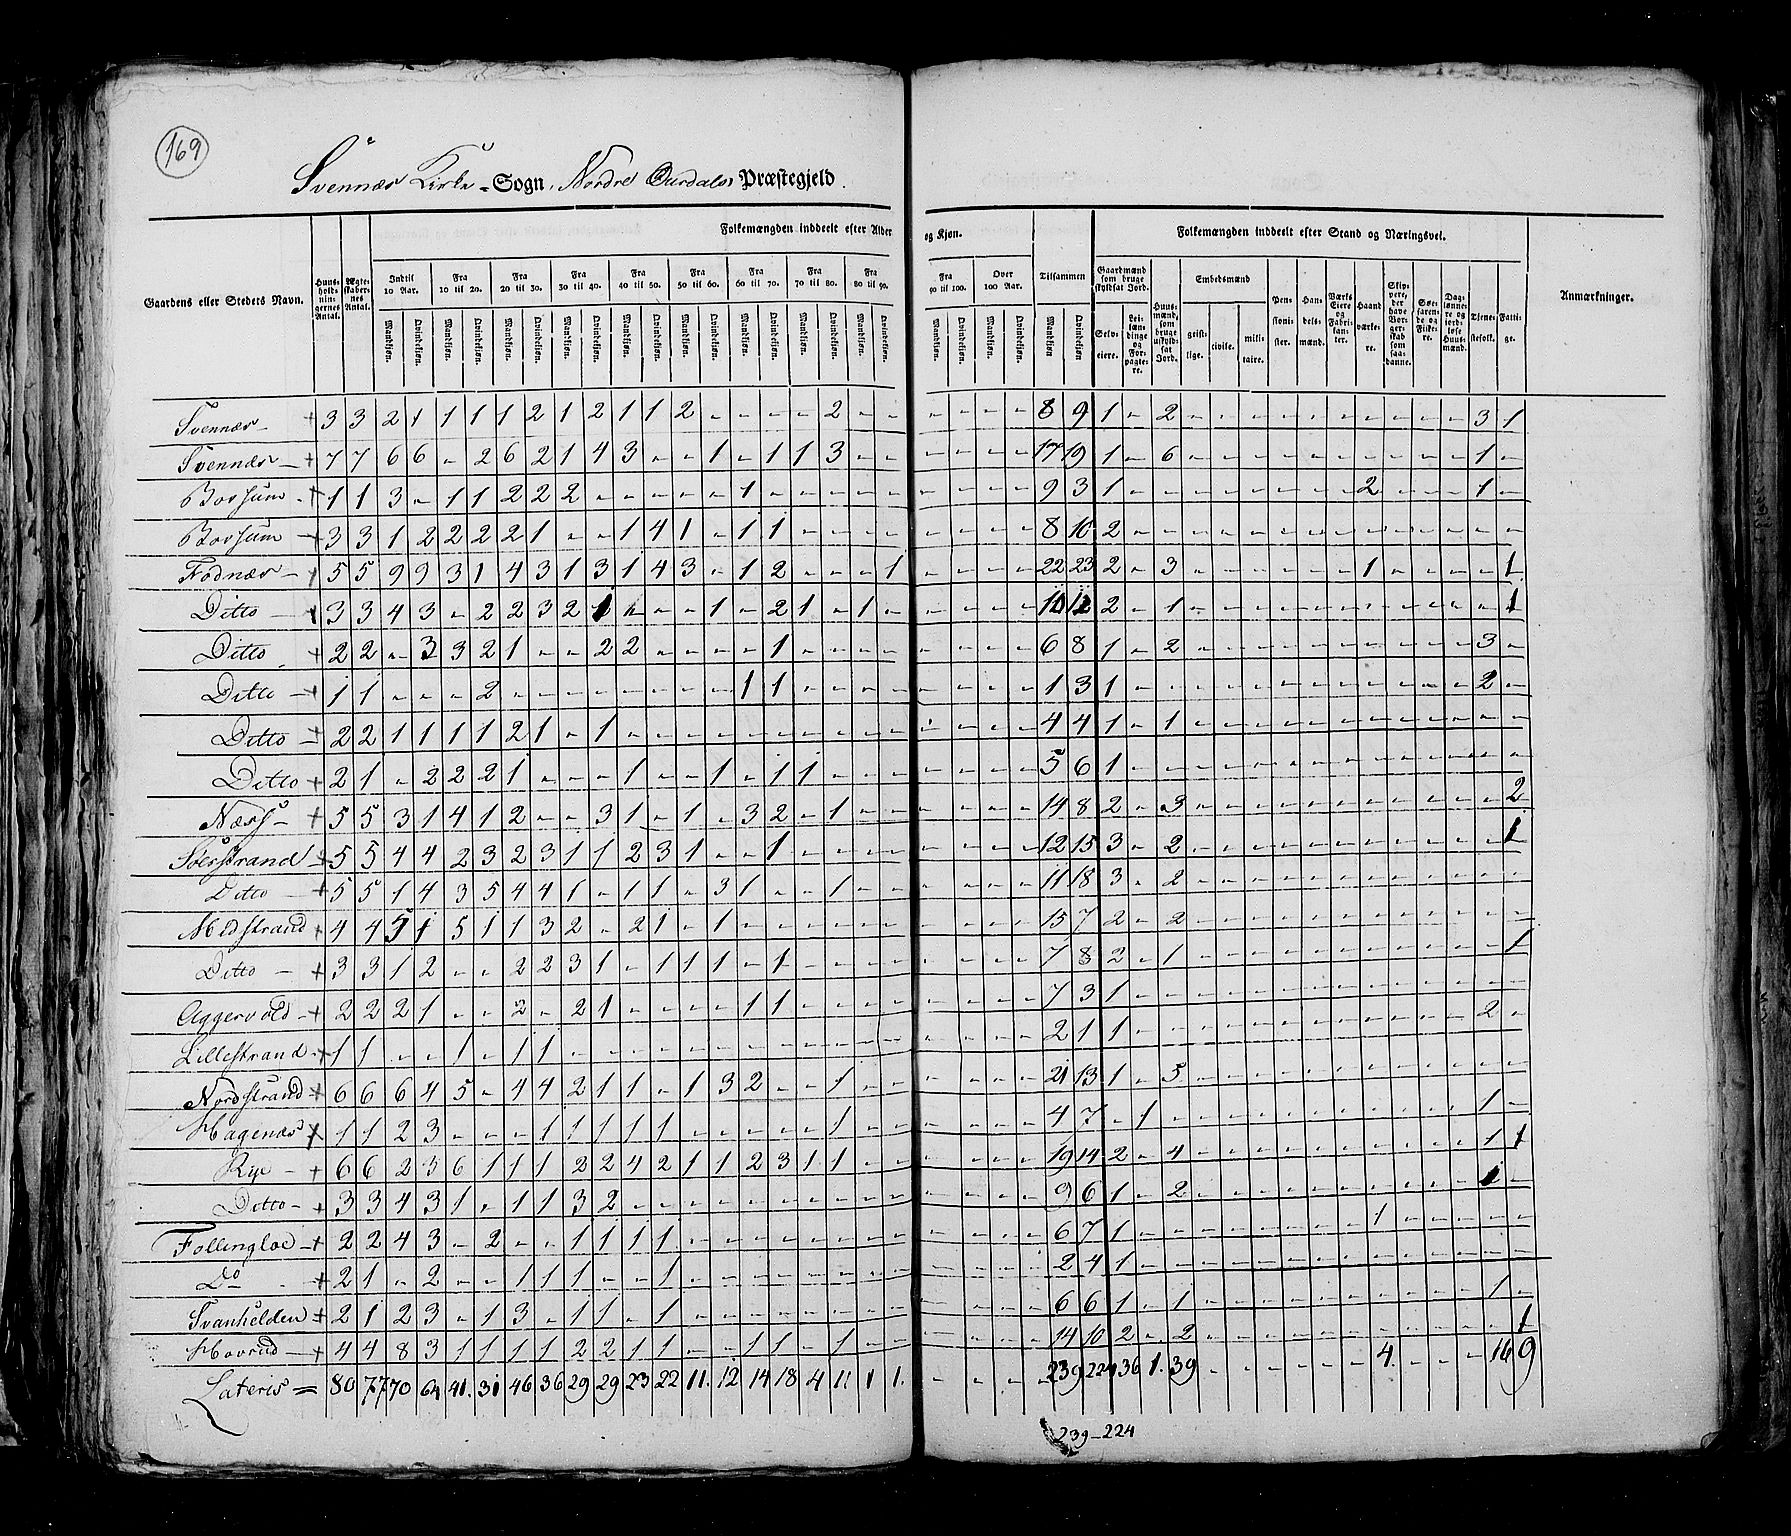 169
Svennæs Kirke-Sogn, Nordre Ourdals Præstegjeld.
Folkemængden inddeelt efter Alder og Kjøn. Folkemængden inddeelt efter Stand og Næringsvei.
Gaardens eller Stedets Navn. Huusholdningernes Antal. Ægteskabernes Antal. Indtil 10 Aar. Fra 10 til 20. Fra 20 til 30. Fra 30 til 40. Fra 40 til 50. Fra 50 til 60. Fra 60 til 70. Fra 70 til 80. Fra 80 til 90. Fra 90 til 100. Over 100 Aar. Tilsammen Gaardmænd som bruge skyldsat Jord. Huusmænd, som bruge uskyldsat Jord. Embedsmænd Pensionister. Handelsmænd. Værks Eiere og Fabrikanter. Haandværkere. Skippere, der have Borgerskab som saadanne. Søefarende og Fiskere. Daglønnere og jordløse Huusmænd. Tjenestefolk. Fattige. Anmærkninger.
Mandkjøn. Qvindekjøn. Mandkjøn. Qvindekjøn. Mandkjøn. Qvindekjøn. Mandkjøn. Qvindekjøn. Mandkjøn. Qvindekjøn. Mandkjøn. Qvindekjøn. Mandkjøn. Qvindekjøn. Mandkjøn. Qvindekjøn. Mandkjøn. Qvindekjøn. Mandkjøn. Qvindekjøn. Mandkjøn. Qvindekjøn. Mandkjøn Qvindekjøn Selveiere. Leilændinge og Forpagtere. geistlige. civile. militaire.
Svennæs - + 3 3 2 1 1 1 1 2 1 2 1 1 2 - - - - 2 - - - - - - 8 9 1 - 2 - - - - - - - - - - 3 1
Svennæs - + 7 7 6 6 - 2 6 2 1 4 3 - - 1 - 1 1 3 - - - - - - 17 19 1 - 6 - - - - - - - - - - 1 -
Borsum - + 1 1 3 - 1 1 2 2 2 - - - - - 1 - - - - - - - - - 9 3 1 - - - - - - - - 2 - - - 1 -
Borsum - + 3 3 1 2 2 2 2 1 - - 1 4 1 - 1 1 - - - - - - - - 8 10 2 - - - - - - - - - - - - - -
Fodnæs - + 5 5 9 9 3 1 4 3 1 3 1 4 3 - 1 2 - - - 1 - - - - 22 23 2 - 3 - - - - - - 1 - - - - 1
Ditto - + 3 3 4 3 - 2 2 3 2 1 - - - 1 - 2 1 - 1 - - - - - 10 12 2 - 1 - - - - - - - - - - - 1
Ditto + 2 2 - 3 3 2 1 - - 2 2 - - - - 1 - - - - - - - - 6 8 1 - 2 - - - - - - - - - - 3 -
Ditto - + 1 1 - - - 2 - - - - - - - - 1 1 - - - - - - - - 1 3 1 - - - - - - - - - - - - 2 -
Ditto - + 2 2 1 1 1 1 2 1 - 1 - - - - - - - - - - - - - - 4 4 1 - 1 - - - - - - - - - - - -
Ditto + 2 1 - 2 2 2 1 - - - 1 - - 1 - 1 1 - - - - - - - 5 6 1 - - - - - - - - - - - - - -
Næss - + 5 5 3 1 4 1 2 - - 3 1 - 1 - 3 2 - 1 - - - - - - 14 8 2 - 3 - - - - - - - - - - - 2
+ 5 5 4 4 2 3 2 3 1 1 2 3 1 - - 1 - - - - - - - - 12 15 3 - 2 - - - - - - - - - - - 1
Ditto - + 5 5 1 4 3 5 4 4 1 - 1 1 - 3 1 - - 1 - - - - - - 11 18 3 - 2 - - - - - - - - - - - -
Midstrand + 4 4 5 1 5 1 1 3 2 - 2 1 - 1 - - - - - - - - - - 15 7 2 - 2 - - - - - - - - - - - -
Ditto - + 3 3 1 2 - - 2 2 3 1 - 1 1 1 - 1 - - - - - - - - 7 8 2 - 1 - - - - - - - - - - - 1
Aggervold - + 2 2 2 1 - - 2 - 2 1 - - - - 1 1 - - - - - - - - 7 3 1 - - - - - - - - - - - - - -
Lillestrand - + 1 1 - - 1 - 1 1 - - - - - - - - - - - - - - - - 2 1 1 - - - - - - - - - - - - 2 -
Nordstrand + 6 6 6 4 5 - 4 4 2 1 1 - 1 3 2 - - 1 - - - - - - 21 13 1 - 5 - - - - - - - - - - - -
Hagenæs + 1 1 2 3 - - - 1 1 1 1 1 - - - - - 1 - - - - - - 4 7 - 1 - - - - - - - - - - - 1 -
Rye - + 6 6 2 3 6 1 1 1 2 2 4 2 1 1 2 3 1 1 - - - - - - 19 14 2 - 4 - - - - - - - - - - 1 1
Ditto - + 3 3 4 3 1 - 1 1 3 2 - - - - - - - - - - - - - - 9 6 1 - 2 - - - - - - - - - - 1 -
Follingloe - + 2 2 4 3 - 2 - - 1 1 1 1 - - - - - - - - - - - - 6 7 1 - - - - - - - - 1 - - - - -
Do - + 2 1 - 2 - - 1 1 1 - - 1 - - - - - - - - - - - - 2 4 1 - - - - - - - - - - - - - -
Svanhelden + 2 1 2 3 - 1 3 - 1 1 - 1 - - - - - - - - - - - - 6 6 1 - 1 - - - - - - - - - - 1 -
Hovrud - + 4 4 8 3 1 1 1 1 2 2 1 1 - - 1 1 - 1 - - - - - - 14 10 2 - 2 - - - - - - - - - - - 1
Lateris = 80 77 70 64 41. 31 46 36 29 29 23 22 11. 12 14 18 4 11 1 1. - - - - 239 224 36 1. 39 - - - - - - 4. - - - 16 9
239-224